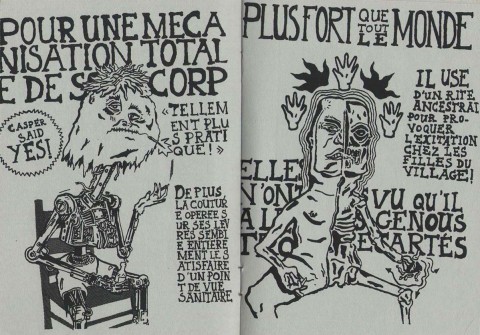 POUR UNE MECA
NISATION TOTAL
E DE S CORP
CASPER
SAID
YES!
« TELLEM
ENT PLU
S PRATI
QUE! »
DE PLUS,
LA COUTUR
E OPEREE S
UR SES LEV
RES SEMBL
E ENTIERE
MENT LE S
ATISFAIRE
D'UN POIN
T DE VUE
SANITAIRE
PLUS FORT QUE
TOUT
LE MONDE
IL USE
D'UN RITE
ANCESTRAL
POUR PRO
VOQUER
L'EXITATION
CHEZ LES
FILLES DU
VILLAGE!
ELLES
N'ONT VU QU'IL
A GENOUS
ECARTÉS